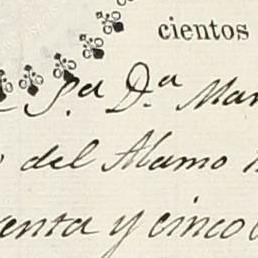 cientos
S.ª D.ª Mar
del Alamo
enta y cinco